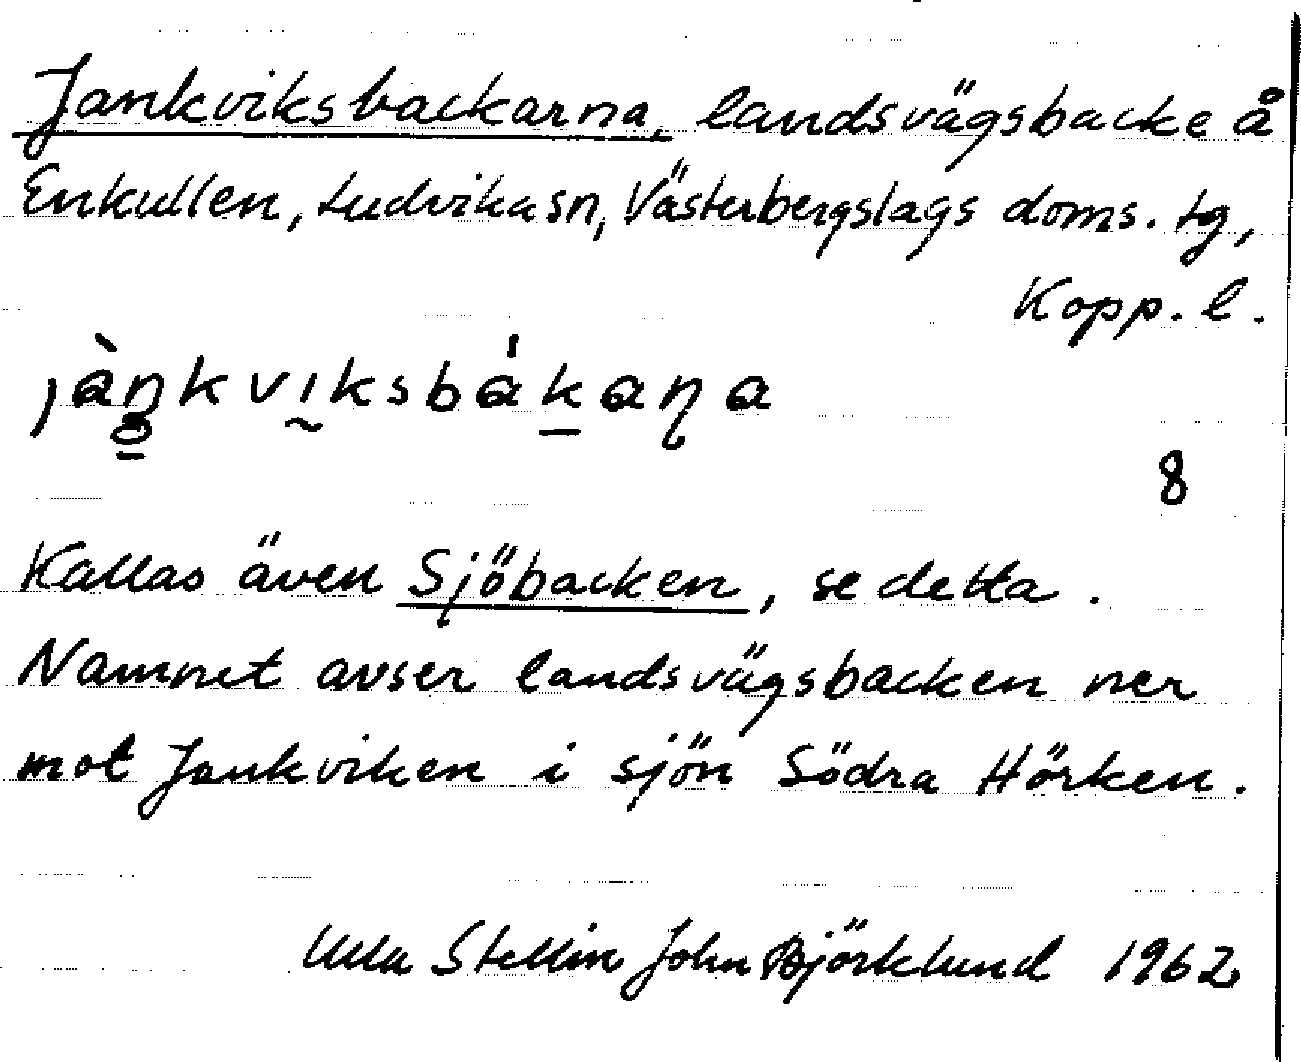 Jankviksbackarna, landsvägsbacke å
Enkullen, Ludvika sn, Västerbergslags doms. tg,
Kopp. l.
jàŋkvı̰ksbák̠aɳa
8
Kallas även Sjöbacken, se detta.
Namnet avser landsvägsbacken ner
mot Jankviken i sjön Södra Hörken.
Ulla Stellin John Björklund 1962